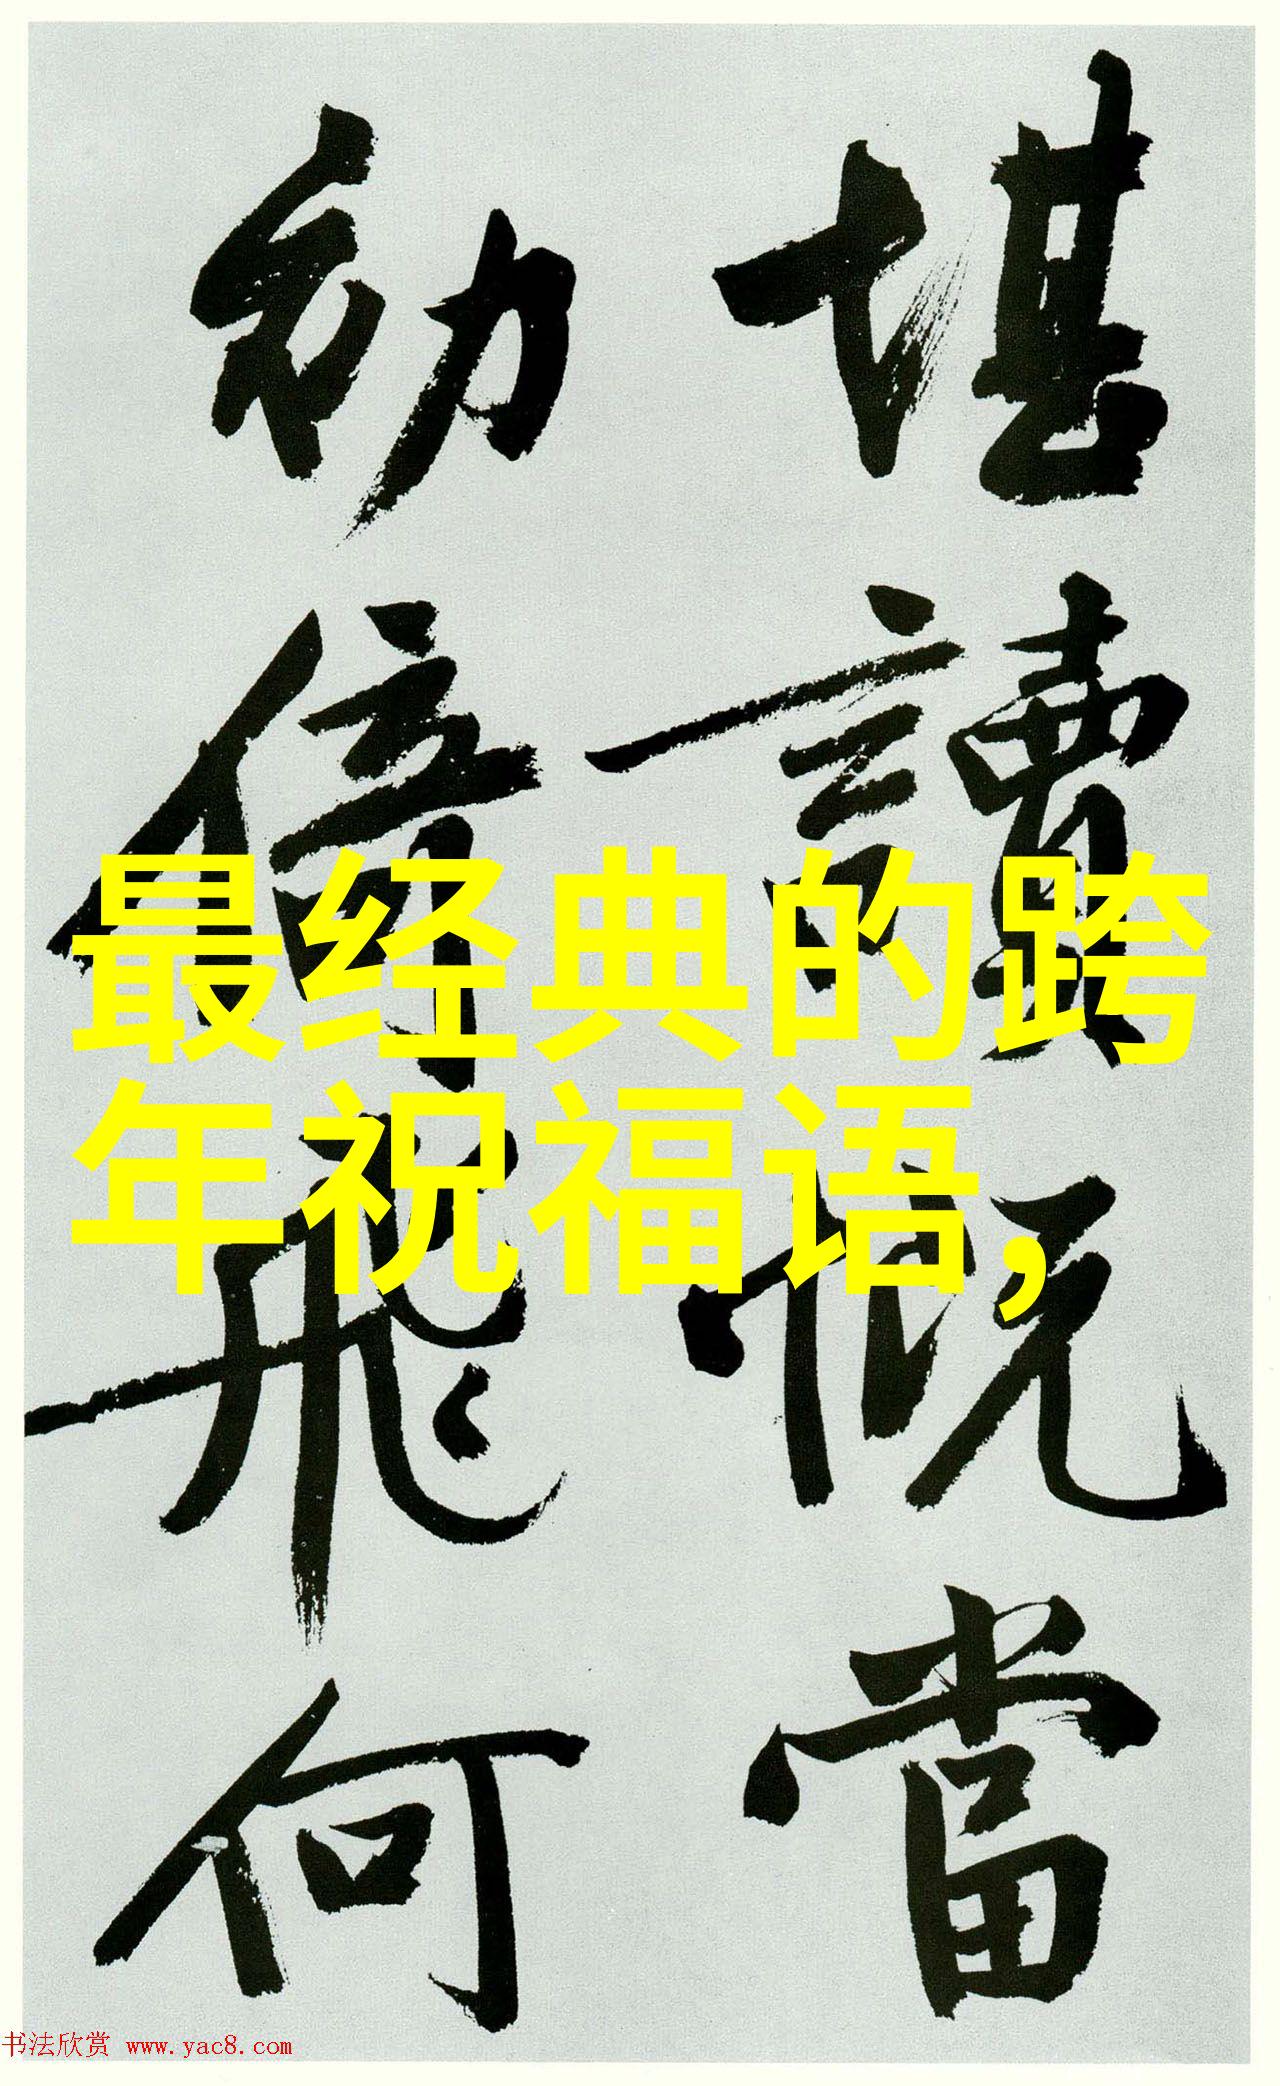 堪讀慨當
幼飛何
最经典的跨
年祝福语,
书法欣赏 www.yac8.com